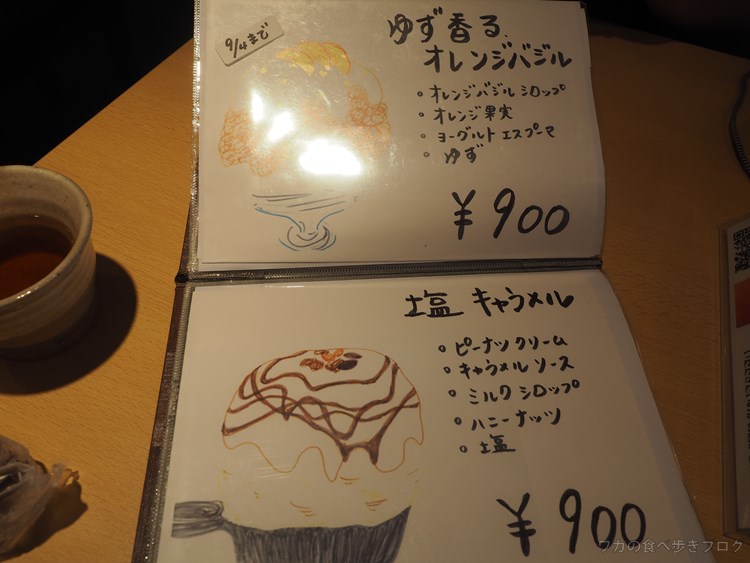 9/4まで
ゆず香る
オレンジバジル
・オレンジバジルシロップ
・オレンジ果実
・ヨーグルトエスプーマ
・ゆず
¥900
塩キャラメル
・ピーナツクリーム
・キャラメルソース
・ミルクシロップ
・ハニーナッツ
・塩
¥900
ワカの食べ歩きブログ